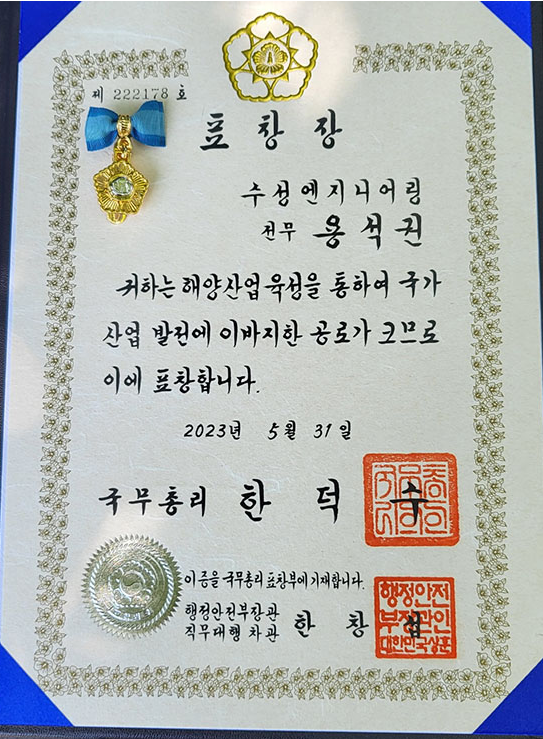 제 222178 호
표창장
수성엔지니어링
전무 용석권
귀하는 해양산업 육성을 통하여 국가
산업 발전에 이바지한 공로가 크므로
이에 표창합니다.
2023년 5월 31일
국무총리 한덕수
이 증을 국무총리 표창부에 기재합니다.
행정안전부장관
직무대행 차관 한창섭
행정안전
부장관인
대한민국상훈